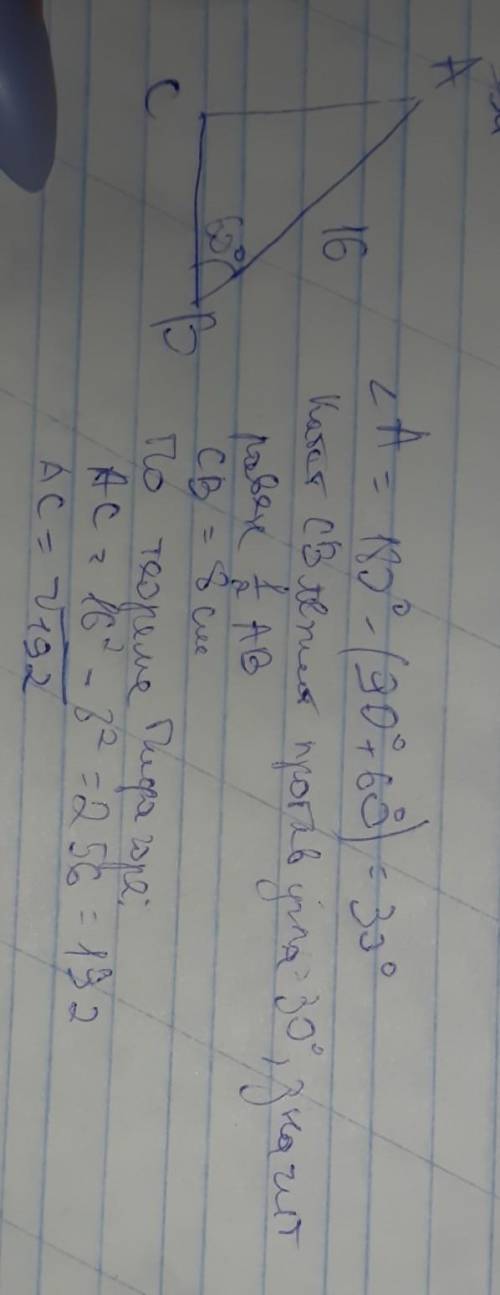 A
C
16
60°
B
∠A = 180° - (90° + 60°) = 30°
Катет CB лежит против угла = 30°, значит
равен 1/2 AB
CB = 8 см
По теореме Пифагора:
AC = 16² - 8² = 256 = 192
AC = √192